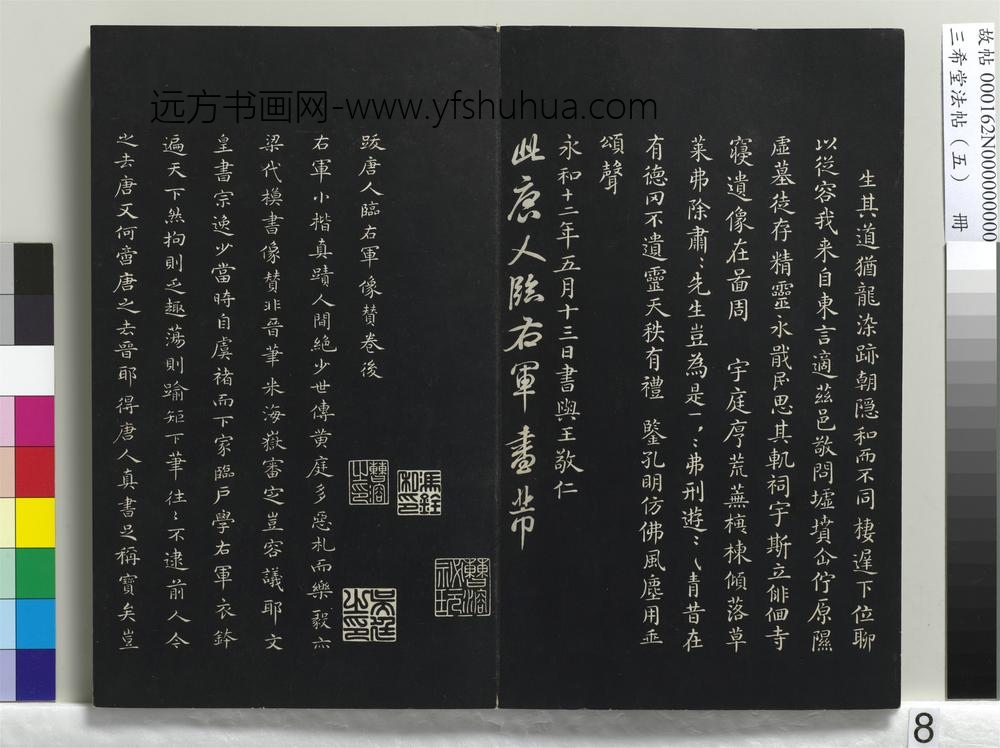 生其道猶龍染跡朝隱和而不同棲遲下位聊
以從容我来自東言適茲邑敬問墟墳企佇原隰
虛墓徒存精靈永戢民思其軌祠宇斯立俳佪寺
寑遺像在啚周 宇庭序荒蕪榱棟傾落草
萊弗除肅〻先生豈為是一〻弗刑遊〻㇏青昔在
有德罔不遺靈天秩有禮 鑒孔明仿佛風塵用垂
頌聲
永和十二年五月十三日書與王敬仁
此唐人臨右軍畫
跋唐人臨右軍像贊卷後
右軍小楷真蹟人間絕少世傳黄庭多惡札而樂毅亦
梁代模書像贊非晉筆米海嶽審定豈容議耶文
皇書宗逸少當時自虞褚而下家臨戶學右軍衣鉢
遍天下然拘則乏趣蕩則踰矩下筆往〻不逮前人今
之去唐又何啻唐之去晉耶得唐人真書足稱寶矣豈
曹溶之印
曹溶秘玩
吳廷之印
远方书画网-www.yfshuhua.com
故帖 000162N000000000
三希堂法帖（五） 冊
8